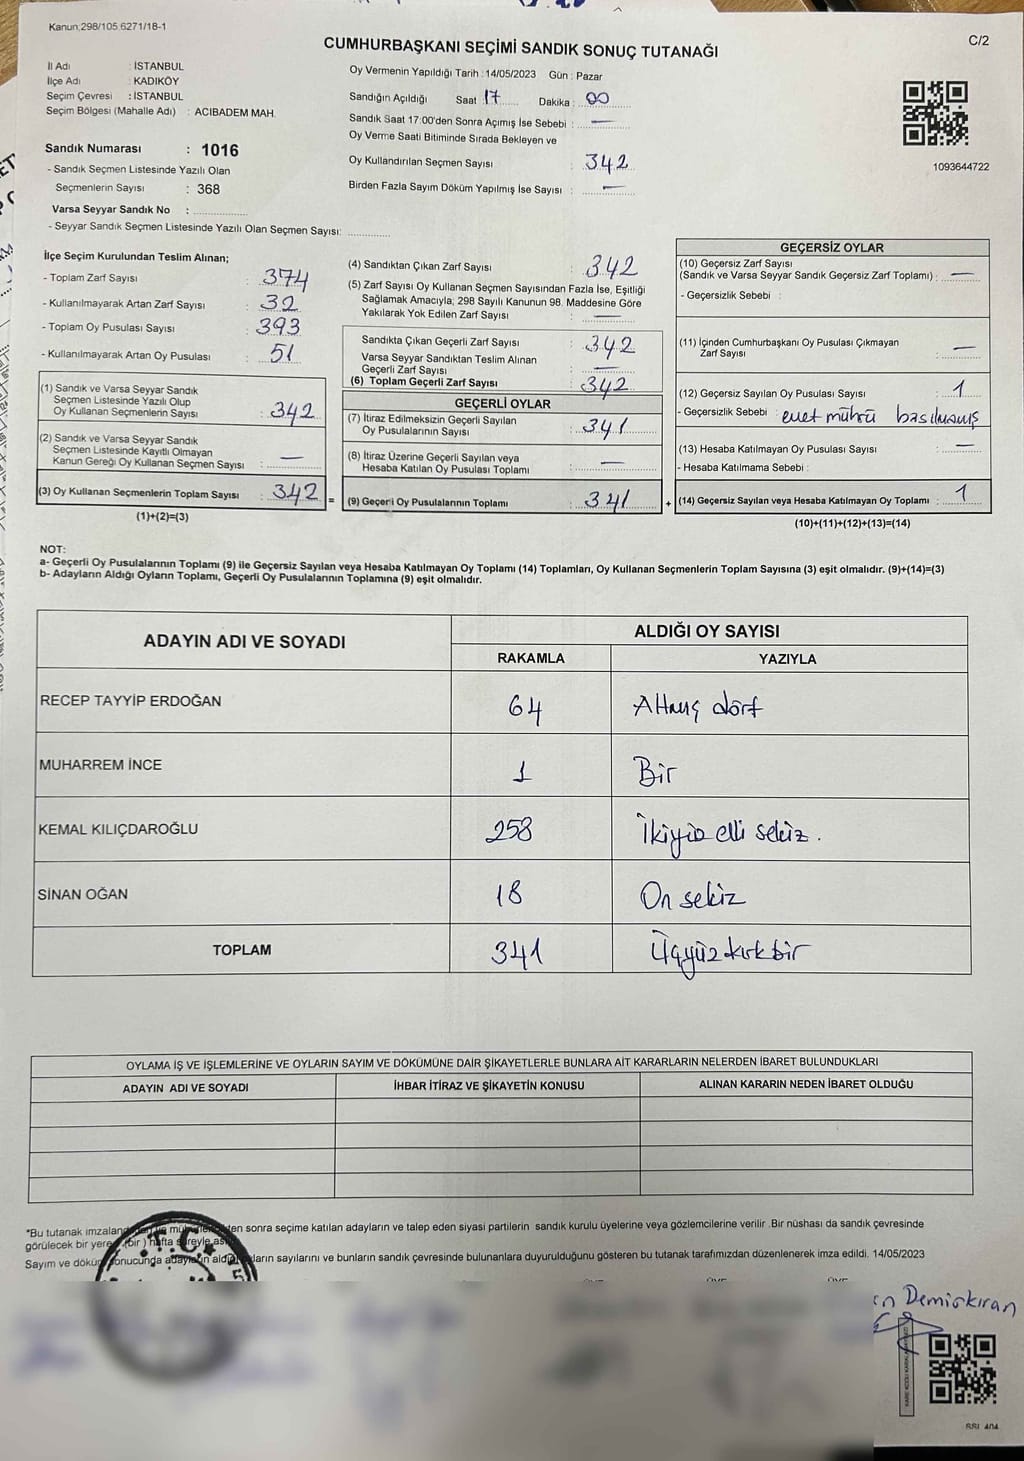 Kanun 298/105 6271/18-1
CUMHURBAŞKANI SEÇİMİ SANDIK SONUÇ TUTANAĞI
C/2
İl Adı : İSTANBUL
İlçe Adı : KADIKÖY
Seçim Çevresi : İSTANBUL
Seçim Bölgesi (Mahalle Adı) : ACIBADEM MAH.
Sandık Numarası : 1016
- Sandık Seçmen Listesinde Yazılı Olan
Seçmenlerin Sayısı : 368
Varsa Seyyar Sandık No :
- Seyyar Sandık Seçmen Listesinde Yazılı Olan Seçmen Sayısı:
Oy Vermenin Yapıldığı Tarih : 14/05/2023 Gün : Pazar
Sandığın Açıldığı Saat 17 Dakika : 00
Sandık Saat 17:00'den Sonra Açımış İse Sebebi : —
Oy Verme Saati Bitiminde Sırada Bekleyen ve
Oy Kullandırılan Seçmen Sayısı : 342
Birden Fazla Sayım Döküm Yapılmış İse Sayısı : —
1093644722
İlçe Seçim Kurulundan Teslim Alınan;
- Toplam Zarf Sayısı : 374
- Kullanılmayarak Artan Zarf Sayısı : 32
- Toplam Oy Pusulası Sayısı : 393
- Kullanılmayarak Artan Oy Pusulası : 51
(1) Sandık ve Varsa Seyyar Sandık
Seçmen Listesinde Yazılı Olup
Oy Kullanan Seçmenlerin Sayısı : 342
(2) Sandık ve Varsa Seyyar Sandık
Seçmen Listesinde Kayıtlı Olmayan
Kanun Gereği Oy Kullanan Seçmen Sayısı : —
(3) Oy Kullanan Seçmenlerin Toplam Sayısı : 342 =
(1)+(2)=(3)
(4) Sandıktan Çıkan Zarf Sayısı : 342
(5) Zarf Sayısı Oy Kullanan Seçmen Sayısından Fazla İse, Eşitliği
Sağlamak Amacıyla, 298 Sayılı Kanunun 98. Maddesine Göre
Yakılarak Yok Edilen Zarf Sayısı : —
Sandıkta Çıkan Geçerli Zarf Sayısı : 342
Varsa Seyyar Sandıktan Teslim Alınan
Geçerli Zarf Sayısı : —
(6) Toplam Geçerli Zarf Sayısı : 342
GEÇERLİ OYLAR
(7) İtiraz Edilmeksizin Geçerli Sayılan
Oy Pusulalarının Sayısı : 341
(8) İtiraz Üzerine Geçerli Sayılan veya
Hesaba Katılan Oy Pusulası Toplamı : —
(9) Geçerli Oy Pusulalarının Toplamı : 341 +
GEÇERSİZ OYLAR
(10) Geçersiz Zarf Sayısı
(Sandık ve Varsa Seyyar Sandık Geçersiz Zarf Toplamı) : —
- Geçersizlik Sebebi :
(11) İçinden Cumhurbaşkanı Oy Pusulası Çıkmayan
Zarf Sayısı : —
(12) Geçersiz Sayılan Oy Pusulası Sayısı : 1
- Geçersizlik Sebebi : evet mührü basılmamış
(13) Hesaba Katılmayan Oy Pusulası Sayısı : —
- Hesaba Katılmama Sebebi :
(14) Geçersiz Sayılan veya Hesaba Katılmayan Oy Toplamı : 1
(10)+(11)+(12)+(13)=(14)
NOT:
a- Geçerli Oy Pusulalarının Toplamı (9) ile Geçersiz Sayılan veya Hesaba Katılmayan Oy Toplamı (14) Toplamları, Oy Kullanan Seçmenlerin Toplam Sayısına (3) eşit olmalıdır. (9)+(14)=(3)
b- Adayların Aldığı Oyların Toplamı, Geçerli Oy Pusulalarının Toplamına (9) eşit olmalıdır.
ADAYIN ADI VE SOYADI
ALDIĞI OY SAYISI
RAKAMLA YAZIYLA
RECEP TAYYİP ERDOĞAN 64 Altmış dört
MUHARREM İNCE 1 Bir
KEMAL KILIÇDAROĞLU 258 İkiyüz elli sekiz.
SİNAN OĞAN 18 On sekiz
TOPLAM 341 Üçyüz kırk bir
OYLAMA İŞ VE İŞLEMLERİNE VE OYLARIN SAYIM VE DÖKÜMÜNE DAİR ŞİKAYETLERLE BUNLARA AİT KARARLARIN NELERDEN İBARET BULUNDUKLARI
ADAYIN ADI VE SOYADI İHBAR İTİRAZ VE ŞİKAYETİN KONUSU ALINAN KARARIN NEDEN İBARET OLDUĞU
*Bu tutanak sonra seçime katılan adayların ve talep eden siyasi partilerin sandık kurulu üyelerine veya gözlemcilerine verilir .Bir nüshası da sandık çevresinde
görülecek bir yere (bir ) hafta süreyle
Sayım ve sonucunda sayılarını ve bunların sandık çevresinde bulunanlara duyurulduğunu gösteren bu tutanak tarafımızdan düzenlenerek imza edildi. 14/05/2023
T.C.
Demirkıran